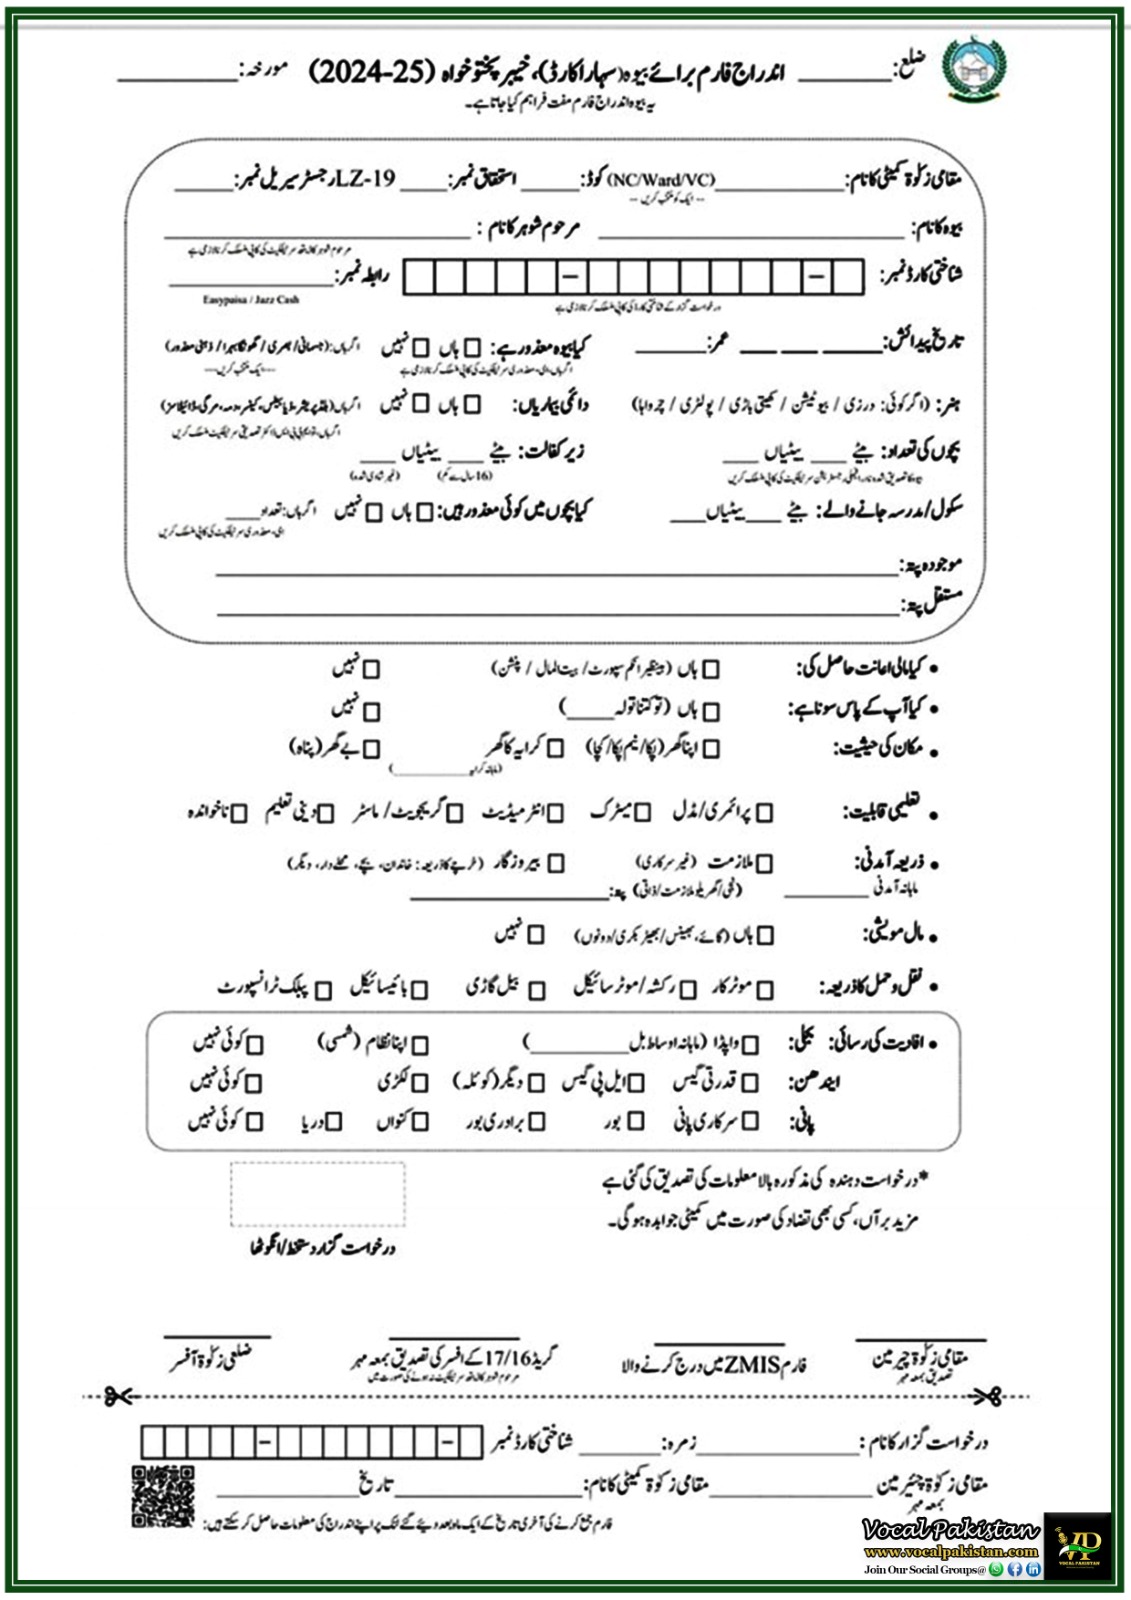 ضلع: ________ اندراج فارم برائے بیوہ (سہارا کارڈ)، خیبر پختونخواہ (2024-25) مورخہ: ________
یہ بیوہ اندراج فارم مفت فراہم کیا جاتا ہے۔
مقامی زکوٰۃ کمیٹی کا نام: ________ (NC/Ward/VC) کوڈ: ______ استحقاق نمبر: _____ LZ-19 رجسٹر سیریل نمبر: ______
-- ایک کو منتخب کریں --
بیوہ کا نام: ________ مرحوم شوہر کا نام : ________
مرحوم شوہر کا نادرا سرٹیفکیٹ کی کاپی منسلک کرنا لازمی ہے
شناختی کارڈ نمبر: رابطہ نمبر: ________
درخواست گزار کے شناختی کارڈ کی کاپی منسلک کرنا لازمی ہے
Easypaisa / Jazz Cash
تاریخ پیدائش: ____ ____ ____ عمر: ______ کیا بیوہ معذور ہے: ☐ ہاں ☐ نہیں اگر ہاں: (جسمانی/ بصری/ گونگا بہرا/ ذہنی معذور)
اگر ہاں، معذوری سرٹیفکیٹ کی کاپی منسلک کرنا لازمی ہے ---ایک منتخب کریں---
ہنر: (اگر کوئی: درزی / بیوٹیشن / کھیتی باڑی / پولٹری / چرواہا) دائمی بیماریاں: ☐ ہاں ☐ نہیں اگر ہاں (بلڈ پریشر، ذیابیطس، کینسر، دمہ، مرگی، ڈائیلائسز)
بچوں کی تعداد: بیٹے ____ بیٹیاں ____ زیر کفالت: بیٹے ____ بیٹیاں ____
(16 سال سے کم) (غیر شادی شدہ)
سکول/مدرسہ جانے والے: بیٹے ____ بیٹیاں ____ کیا بچوں میں کوئی معذور ہیں: ☐ ہاں ☐ نہیں اگر ہاں: تعداد ____
معذوری سرٹیفکیٹ کی کاپی منسلک کریں
موجودہ پتہ: ________
مستقل پتہ: ________
• کیا مالی اعانت حاصل کی: ☐ ہاں (بینظیر انکم سپورٹ/ بیت المال / پنشن) ☐ نہیں
• کیا آپ کے پاس سونا ہے: ☐ ہاں (تو کتنا تولہ ____) ☐ نہیں
• مکان کی حیثیت: ☐ اپنا گھر (پکا/ نیم پکا/ کچا) ☐ کرایہ کا گھر ☐ بے گھر (پناہ)
(ماہانہ کرایہ ________)
• تعلیمی قابلیت: ☐ پرائمری/مڈل ☐ میٹرک ☐ انٹر میڈیٹ ☐ گریجویٹ/ ماسٹر ☐ دینی تعلیم ☐ ناخواندہ
• ذریعہ آمدنی: ☐ ملازمت (غیر سرکاری) ☐ بیروزگار (خرچے کا ذریعہ: خاندان، بچے، محلے دار، دیگر)
ماہانہ آمدنی ________ (نجی/گھریلو ملازمت/ذاتی) پتہ: ________
• مال مویشی: ☐ ہاں (گائے، بھینس/بھیڑ بکری/دونوں) ☐ نہیں
• نقل و حمل کا ذریعہ: ☐ موٹر کار ☐ رکشہ/موٹر سائیکل ☐ بیل گاڑی ☐ بائیسائیکل ☐ پبلک ٹرانسپورٹ
• افادیت کی رسائی: بجلی: ☐ واپڈا (ماہانہ اوساط بل ________) ☐ اپنا نظام (شمسی) ☐ کوئی نہیں
ایندھن: ☐ قدرتی گیس ☐ ایل پی گیس ☐ دیگر (کوئلہ) ☐ لکڑی ☐ کوئی نہیں
پانی: ☐ سرکاری پانی ☐ بور ☐ برادری بور ☐ کنواں ☐ دریا ☐ کوئی نہیں
*درخواست دہندہ کی مذکورہ بالا معلومات کی تصدیق کی گئی ہے
مزید برآں، کسی بھی تضاد کی صورت میں کمیٹی جوابدہ ہوگی۔
درخواست گزار دستخط/انگوٹھا
مقامی زکوٰۃ چیرمین فارم ZMIS میں درج کرنے والا گریڈ 17/16 کے افسر کی تصدیق بمعہ مہر ضلعی زکوٰۃ آفسر
تصدیق بمعہ مہر مرحوم شوہر کا نادرا سرٹیفکیٹ نہ ہونے کی صورت میں
درخواست گزار کا نام : ________ زمرہ: ________ شناختی کارڈ نمبر
مقامی زکوٰۃ چیئرمین ________ مقامی زکوٰۃ کمیٹی کا نام: ________ تاریخ ________
بمعہ مہر
فارم جمع کرنے کی آخری تاریخ کے ایک ماہ بعد دیئے گئے لنک پر اپنے اندراج کی معلومات حاصل کر سکتے ہیں:
Vocal Pakistan
www.vocalpakistan.com
Join Our Social Groups@
VP
VOCAL PAKISTAN